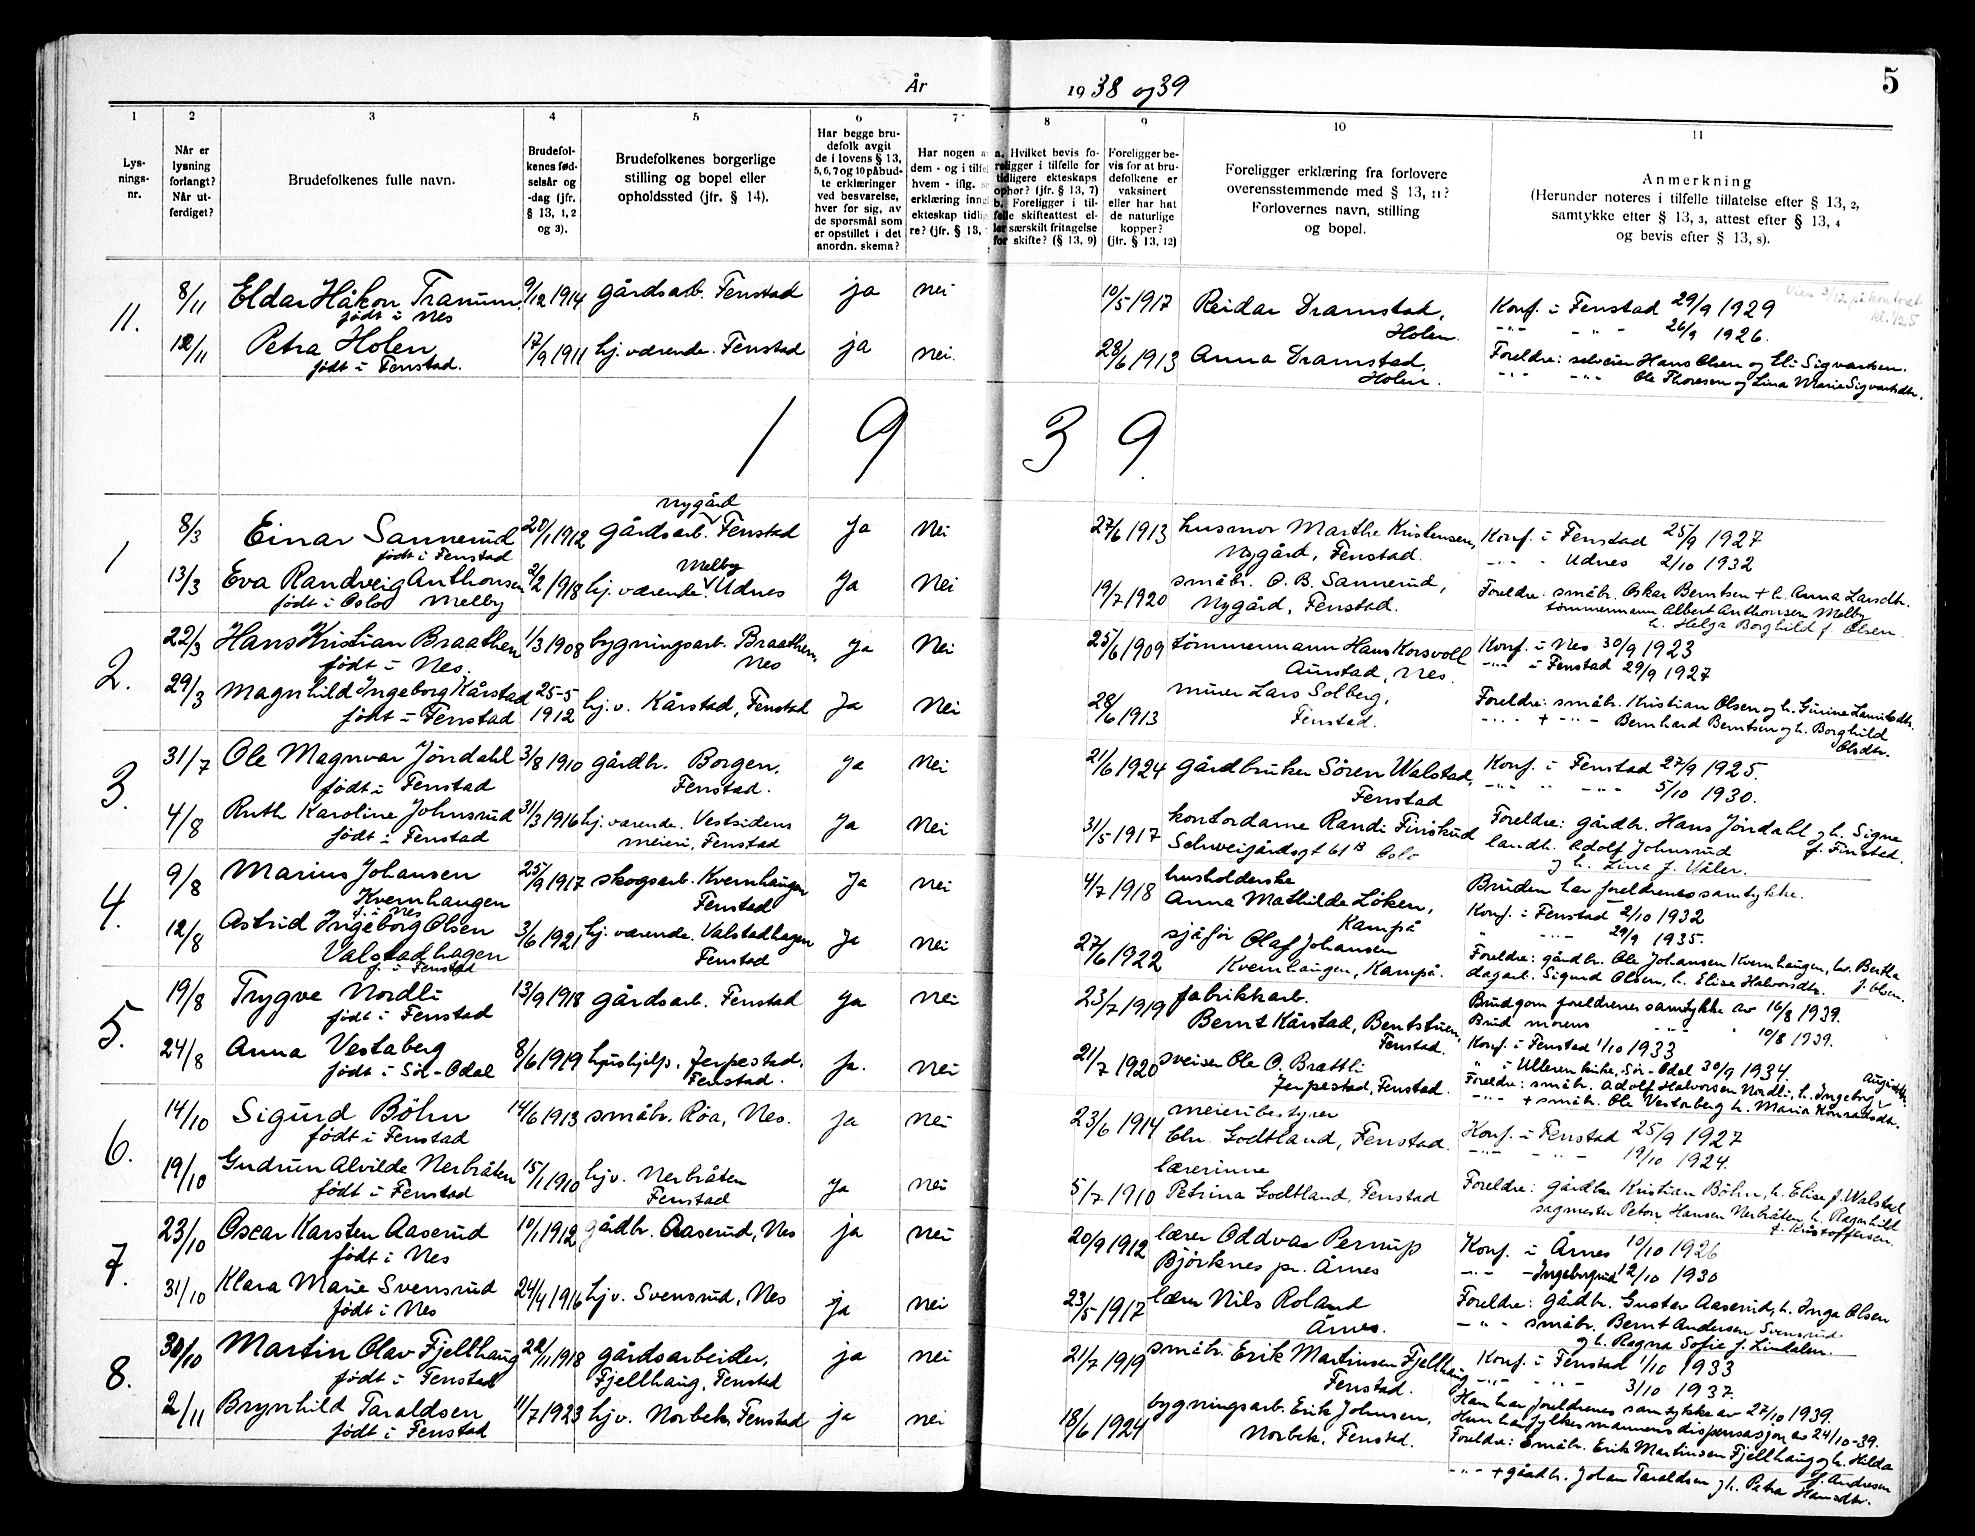 5
År 1938 og 39
1 2 3 4 5 6 7 8 9 10 11
Lys-
nings-
nr.
Når er
lysning
forlangt?
Når ut-
ferdiget?
Brudefolkenes fulle navn.
Brudefol-
kenes fød-
selsår og
-dag (jfr.
§ 13, 1, 2
og 3).
Brudefolkenes borgerlige
stilling og bopel eller
opholdssted (jfr. § 14).
Har begge bru-
defolk avgit
de i lovens § 13,
5, 6, 7 og 10 påbud-
te erklæringer
ved besvarelse,
hver for sig, av
de spørsmål som
er opstillet i det
anordn. skema?
Har nogen a
dem - og i tilfe
hvem - iflg. s
erklæring inn
ekteskap tidlig
re? (jfr. § 13,
a. Hvilket bevis fo-
religger i tilfelle for
tidligere ekteskaps
ophør? (jfr. § 13, 7)
b. Foreligger i til-
felle skifteattest el-
ler særskilt fritagelse
for skifte? (§ 13, 9)
Foreligger be-
vis for at bru-
defolkene er
vaksinert
eller har hat
de naturlige
kopper?
(jfr. § 13, 12)
Foreligger erklæring fra forlovere
overensstemmende med § 13, 11?
Forlovernes navn, stilling
og bopel.
Anmerkning
(Herunder noteres i tilfelle tillatelse efter § 13, 2,
samtykke efter § 13, 3, attest efter § 13, 4
og bevis efter § 13, 8).
11. 8/11 Eldar Håkon Tranum 9/12 1914 gårdsarb. Fenstad ja nei 10/5 1917 Reidar Dramstad, Konf. i Fenstad 29/9 1929
født i Nes Holen. -"- - " - 26/9 1926.
12/11 Petra Holen 17/9 1911 hj. værende. Fenstad ja nei. 28/6 1913 Anna Dramstad, Foreldre: selveier Hans Olsen og Eli Sigvartsen.
født i Fenstad. Holen. -"- -"- Ole Thoresen og Lina Marie Sigvartsdtr.
1 9 3 9.
1 8/3 Einar Sannerud 20/1 1912 gårdsarb. Nygård Fenstad Ja Nei 27/6 1913 husmor Marthe Kristensen, Konf. i Fenstad 25/9 1927
født i Fenstad Nygård, Fenstad. -"- - Udnes 2/10 1932
13/3 Eva Randveig Anthonsen 2/2 1918 hj. værende. Melby Udnes Ja Nei 19/7 1920 småbr. O. B. Sannerud, Foreldre: småbr. Oskar Berntsen + h. Anna Larsdtr.
født i Oslo Melby Nygård, Fenstad. tömmermann Albert Anthonsen Melby
h. Helga Borghild f. Olsen.
2. 22/3 Hans Kristian Braathen 1/3 1908 bygningsarb. Braathen, Ja Nei 25/6 1909 tömmermann Hans Korsvoll Konf. i Nes 30/9 1923
født i Nes. Nes Aunstad, Nes. -"- i Fenstad 29/9 1927
29/3 Magnhild Ingeborg Kårstad 25-5 1912 hj. v. Kårstad, Fenstad Ja Nei 28/6 1913 murer Lars Solberg, Foreldre: småbr. Kristian Olsen og h. Gurine
født i Fenstad Fenstad. -"- + -"- Bernhard Berntsen og h. Borghild
Olsdtr.
3. 31/7 Ole Magnvar Jöndahl 3/8 1910 gårdbr. Borgen, Ja Nei 21/6 1924 gårdbruker Sören Walstad, Konf. i Fenstad 27/9 1925.
født i Fenstad Fenstad. Fenstad -"- " -"- 5/10 1930.
4/8 Ruth Karoline Johnsrud 31/3 1916 hj. værende. Vestsidens Ja Nei 31/5 1917 kontordame Randi Finskud Foreldre: gårdbr. Hans Jöndahl og h. Signe
født i Fenstad meieri, Fenstad Schweigårdsgt 61 B Oslo landh. Adolf Johnsrud f. Finstad.
og h. Lina f. Våler.
4. 9/8 Marius Johansen 25/9 1917 skogsarb. Kvernhaugen Ja Nei 4/7 1918 husholderske Bruden har foreldrenes samtykke.
Kvernhaugen Fenstad Anna Mathilde Löken, Konf. i Fenstad 2/10 1932
f. i Nes Kampå " -"- 29/9 1935.
12/8 Astrid Ingeborg Olsen 3/6 1921 hj. værende. Valstadhagen Ja nei 27/6 1922 sjåfør Olaf Johansen Foreldre: gårdbr. Ole Johansen Kvernhaugen, h. Bertha
Valstadhagen Fenstad Kvernhaugen, Kampå. dagarb. Sigurd Olsen, h. Elise Halvorsdtr. f. Olsen.
f. i Fenstad
5. 19/8 Trygve Nordli 13/9 1918 gårdsarb. Fenstad Ja nei 23/7 1919 fabrikkarb. Brudgom foreldrenes samtykke av 16/8 1939.
født i Fenstad Bernt Kårstad, Bentstuen, Brud morens -"- " 10/8 1939.
Fenstad. Konf. i Fenstad 1/10 1933
24/8 Anna Vestaberg 8/6 1919 hushjelp. Jerpestad. Ja. nei 21/7 1920 sveiser Ole O. Brættli " i Ulleren kirke, Sör-Odal 30/9 1934.
født i Sör-Odal Fenstad. Jerpestad, Fenstad. Foreldre: småbr. Adolf Halvorsen Nordli, h. Ingeborg
-"- + småbr. Ole Vestaberg h. Maria Konradsdtr.
6. 14/10 Sigurd Böhn 14/6 1913 småbr. Röa, Nes. ja nei 23/6 1914 meieribestyrer Konf. i Fenstad 25/9 1927
født i Fenstad Chr. Godtland, Fenstad. -"- - " - 19/10 1924.
19/10 Gudrun Alvilde Nerbråten 15/1 1910 hj v. Nerbråten ja nei 5/7 1910 lærerinne Foreldre: gårdbr Kristian Böhn, h. Elise f. Walstad
født i Fenstad Fenstad Petrina Godtland, Fenstad sagmester Peter Hansen Nerbråten h. Ragnhild
f. Kristoffersen.
7. 23/10 Oscar Karsten Aaserud 10/1 1912 gårdbr. Aaserud, Nes ja nei 20/9 1912 lærer Oddvar Perrup Konf. i Årnes 10/10 1926
født i Nes Björknes pr. Årnes -"- - Ingeborgrud 12/10 1930
31/10 Klara Marie Svensrud 24/4 1916 hj v. Svensrud, Nes ja nei 23/5 1917 lærer Nils Roland Foreldre: gårdbr. Gustav Aaserud, h. Inga Olsen
født i Nes Årnes. -"- småbr. Bernt Andersen Svensrud
og h. Ragna Sofie f. Lindalen.
8. 30/10 Martin Olav Fjellhaug 22/11 1918 gårdsarbeider, ja nei 21/7 1919 småbr. Erik Martinsen Fjellhaug Konf. i Fenstad 1/10 1933
født i Fenstad Fjellhaug, Fenstad Fenstad. -"- - " - 3/10 1937.
Han har foreldrenes samtykke av 27/10 1939.
2/11 Brynhild Taraldsen 11/7 1923 hj v. Norbek Fenstad ja nei 18/6 1924 bygningsarb. Erik Johnsen, Hun har fylkesmannens dispensasjon av 24/10-39.
født i Fenstad Norbek, Fenstad. Foreldre: Småbr. Erik Martinsen Fjellhaug og h. Hilda
f. Andresen
-"- + gårdbr. Johan Taraldsen og h. Petra Hansdtr.